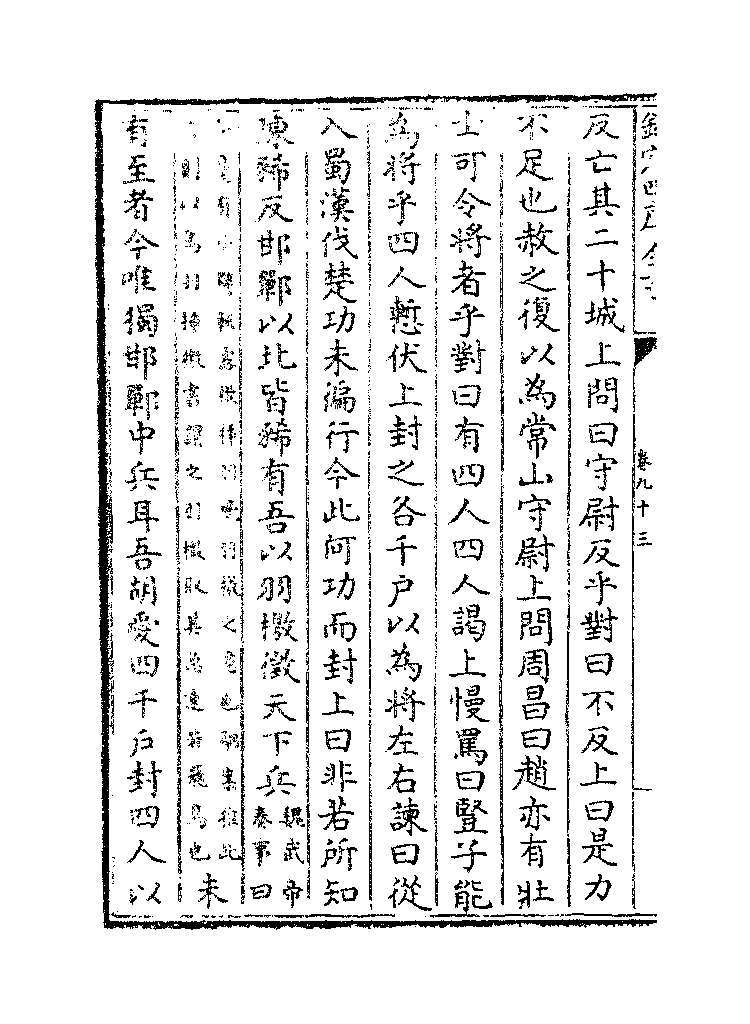 欽定四庫全書
卷九十三
反亡其二十城上問曰守尉反乎對曰不反上曰是力
不足也赦之復以為常山守尉上問周昌曰趙亦有壯
士可令將者乎對曰有四人四人謁上慢罵曰豎子能
為將乎四人慙伏上封之各千户以為將左右諫曰從
入蜀漢伐楚功未徧行今此何功而封上曰非若所知
陳豨反邯鄲以北皆豨有吾以羽檄徵天下兵魏武帝奏事曰
露檄插羽羽檄之意也駰案推此
則以鳥羽插檄書謂之羽檄取其急速若飛鳥也未
有至者今唯獨邯鄲中兵耳吾胡愛四千户封四人以